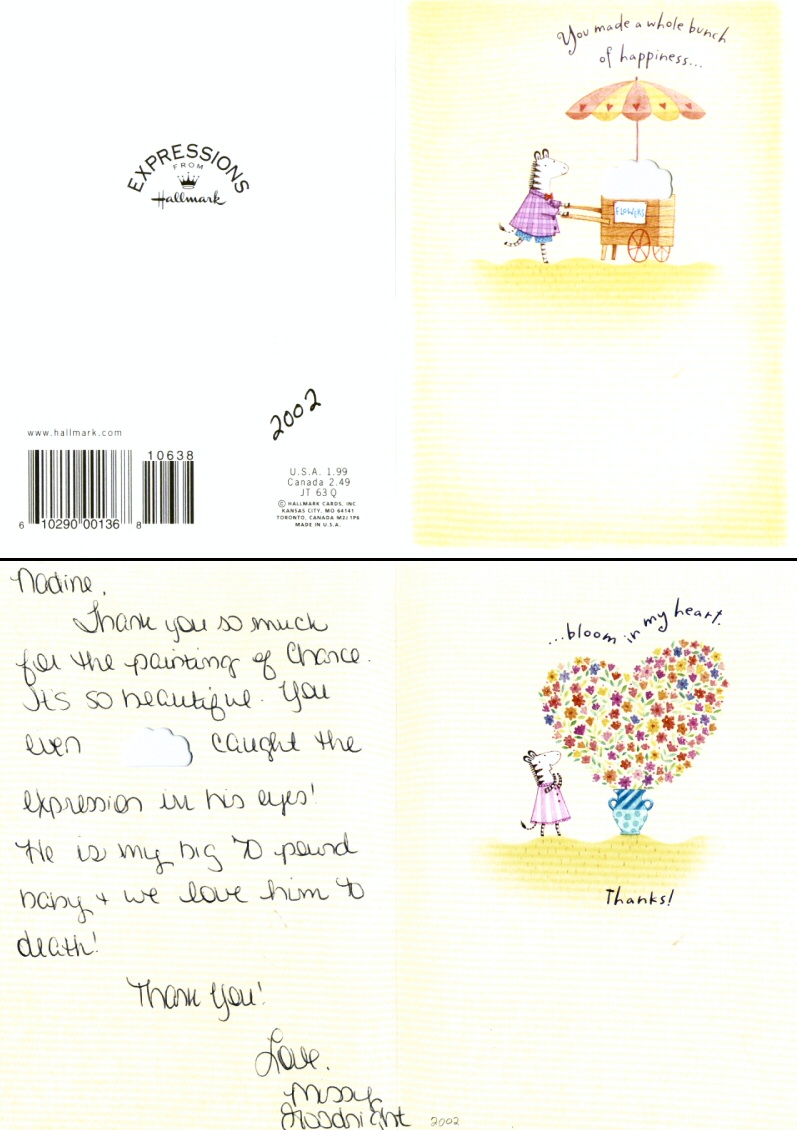 You made a whole bunch
of happiness...
FLOWERS
EXPRESSIONS
FROM
Hallmark
2002
www.hallmark.com
10638
6 10290 00136 8
U.S.A. 1.99
Canada 2.49
JT 63 Q
© HALLMARK CARDS, INC.
KANSAS CITY, MO 64141
TORONTO, CANADA M2J 1P6
MADE IN U.S.A.
Nadine,
Thank you so much
for the painting of Chance.
It's so beautiful. You
even caught the
expression in his eyes!
He is my big 70 pound
baby + we love him to
death!
Thank You!
Love,
Missy
Goodnight
2002
...bloom in my heart.
Thanks!